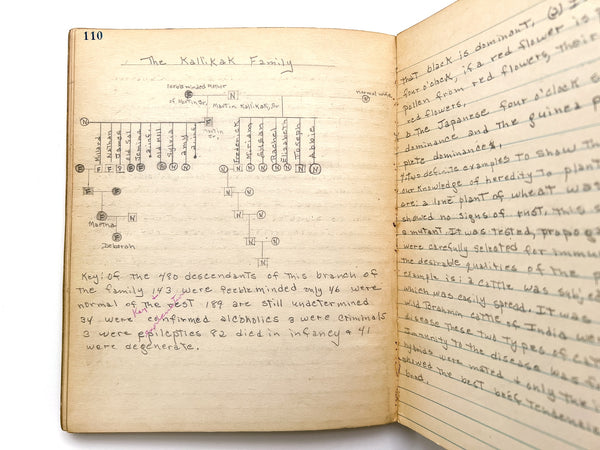 110
The Kallikak Family
feeble minded Mother
of Martin Jr.
Martin Kallikak, Sr
normal wife
N
N
Millard
Nathan
James
old Kat
Jemima
Sylvia
Amy
Frederick
Miriam
Susan
Rachel
Elizabeth
Joseph
Abbie
Martha
Deborah
Key: Of the 480 descendants of this branch of
the family 143 were feebleminded only 46 were
normal of the rest 189 are still undetermined
34 were confirmed alcoholics 3 were criminals
3 were epileptics 82 died in infancy & 41
were degenerate.
that black is dominant. (2) I
four o'clock, if a red flower is
pollen from red flowers, their
red flowers.
b. The Japanese four o'clock
dominance and the guinea
plete dominances.
7. Two definite examples to show th
our knowledge of heredity to plant
are: a lone plant of wheat was
showed no signs of rust. This
a mutant. It was tested, propag
were carefully selected for immun
the desirable qualities of the
example is: a cattle was subj
which was easily spread. It was
wild Brahmin cattle of India wer
disease these two types of cat
immunity to the disease was
hybrids were mated & only the
showed the best beef tendencie
bred.